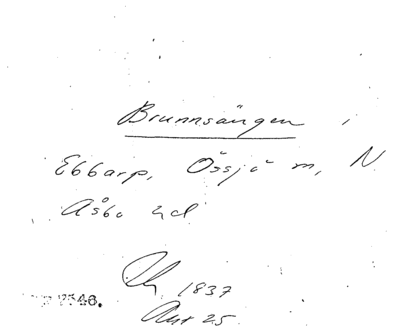 Brunnsängen
Ebbarp, Össjö m, N
Åsbo hd
1837
Akt 25
46.